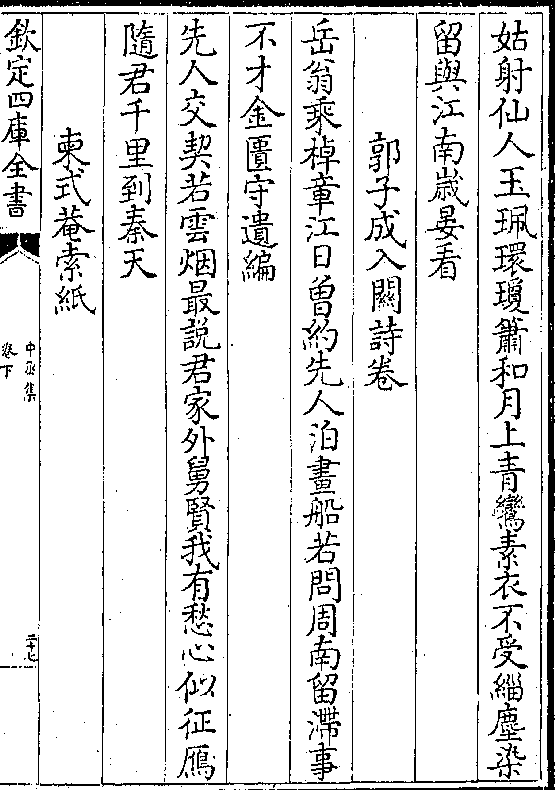 姑射仙人玉珮環瓊簫和月上青鸞素衣不受緇塵染
留與江南歲晏看
郭子成入關詩卷
岳翁乘棹章江日曽約先人泊畫船若問周南留滯事
不才金匱守遺編
先人交契若雲烟最説君家外舅賢我有愁心似征鴈
隨君千里到秦天
柬式菴索紙
欽定四庫全書
中丞集
卷下
二十七